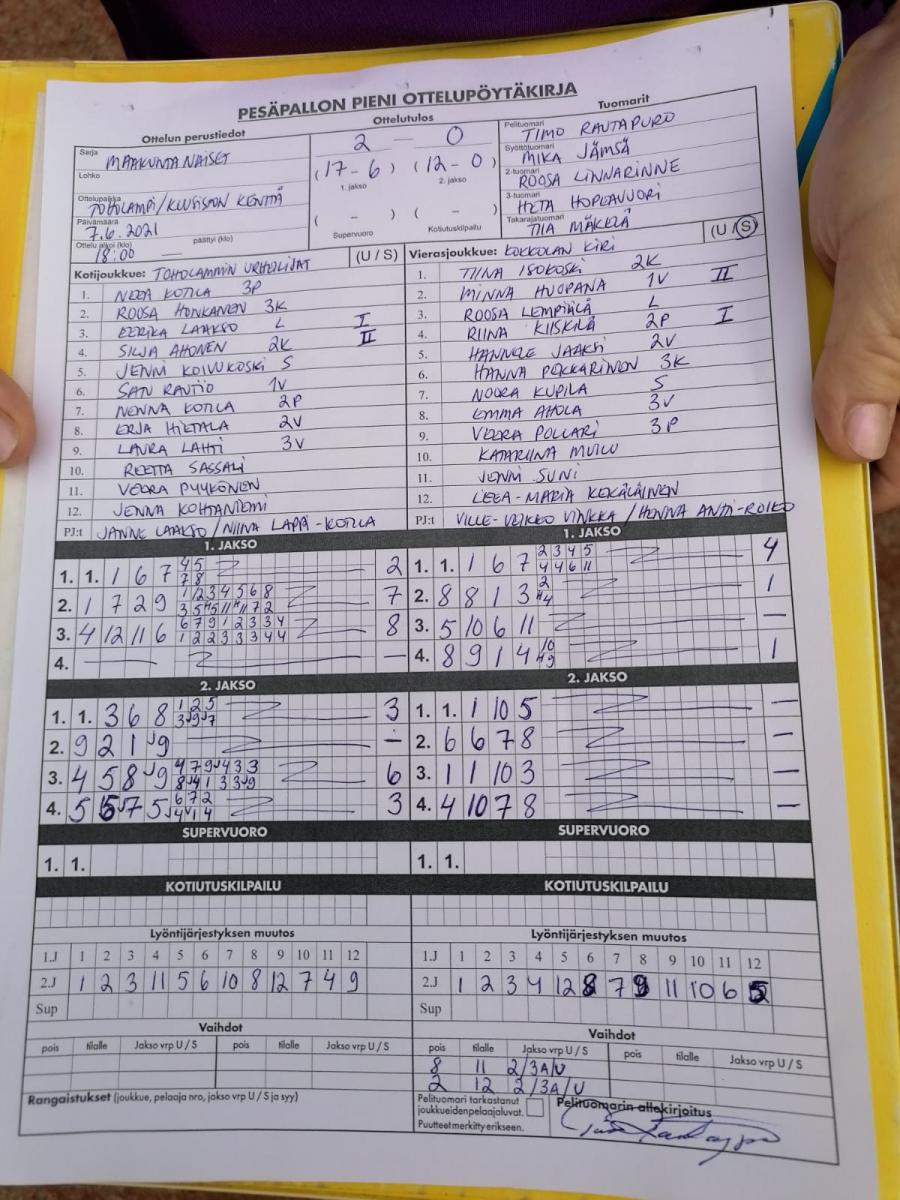 PESÄPALLON PIENI OTTELUPÖYTÄKIRJA
Ottelun perustiedot
Sarja MAAKUNTANAISET
Lohko
Ottelupaikka TOHOLAMPI/KUUSISAN KENTTÄ
Päivämäärä 7.6.2021
Ottelu alkoi (klo) 18:00 — päättyi (klo)
Ottelutulos
2 — 0
(17-6) (12-0)
1. jakso 2. jakso
( - ) ( - )
Supervuoro Kotiutuskilpailu
Tuomarit
Pelituomari TIMO RAUTAPURO
Syöttötuomari MIKA JÄMSÄ
2-tuomari ROOSA LINNARINNE
3-tuomari HETA HOPEAVUORI
Takarajatuomari TIIA MÄKELÄ
Kotijoukkue: TOHOLAMMIN URHEILIJAT (U / S)
1. NEEA KOTILA 3P
2. ROOSA HONKANEN 3K
3. EERIKA LAAKSO L I
4. SILJA AHONEN 2K II
5. JENNI KOIVUKOSKI S
6. SATU RAUTIO 1V
7. NENNA KOTILA 2P
8. ERJA HIETALA 2V
9. LAURA LAHTI 3V
10. REETTA SASSALI
11. VEERA PYYKÖNEN
12. JENNA KOHTANIEMI
PJ:t JANNE LAAKSO/NIINA LAPPI-KOTILA
Vierasjoukkue: KOKKOLAN KIRI (U / S)
1. TIINA ISOKOSKI 2K
2. MINNA HUOPANA 1V II
3. ROOSA LEMPIÄLÄ L
4. RIINA KIISKILÄ 2P I
5. HANNELE JAAKSI 2V
6. HANNA PEKKARINEN 3K
7. NOORA KUPILA S
8. EMMA AHOLA 3V
9. VEERA POLLARI 3P
10. KATARIINA MUILU
11. JENNI SUNI
12. LEEA-MARIA KEKÄLÄINEN
PJ:t VILLE-VEIKKO VINKKA / HENNA ANTTI-ROIKO
1. JAKSO
1. 1. 1 6 7 2
4 5
7 8
2. 1 7 2 9 7
1 2 3 4 5 6 8
3. 4 12 11 6 8
6 7 9 1 2 3 3 4
1 2 2 3 3 3 4 4
4. — —
1. JAKSO
1. 1. 1 6 7 4
2 3 4 5
4 4 6 11
2. 8 8 1 3 1
3. 5 10 6 11 —
4. 8 9 1 4 1
2. JAKSO
1. 1. 3 6 8 3
1 2 5
2. 9 2 1 J9 -
3. 4 5 8 J9 6
4. 5 5 J7 5 3
6 7 2
2. JAKSO
1. 1. 1 10 5 —
2. 6 6 7 8 —
3. 1 1 10 3 —
4. 4 10 7 8 —
SUPERVUORO
1. 1.
SUPERVUORO
1. 1.
KOTIUTUSKILPAILU
KOTIUTUSKILPAILU
Lyöntijärjestyksen muutos
1.J 1 2 3 4 5 6 7 8 9 10 11 12
2.J 1 2 3 11 5 6 10 8 12 7 4 9
Sup
Lyöntijärjestyksen muutos
1.J 1 2 3 4 5 6 7 8 9 10 11 12
2.J 1 2 3 4 12 8 7 9 11 10 6 5
Sup
Vaihdot
pois tilalle Jakso vrp U / S pois tilalle Jakso vrp U / S
Vaihdot
pois tilalle Jakso vrp U / S pois tilalle Jakso vrp U / S
8 11 2/3A/U
2 12 2/3A/U
Rangaistukset (joukkue, pelaaja nro, jakso vrp U / S ja syy)
Pelituomari tarkastanut
joukkueidenpelaajaluvat.
Puutteet merkitty erikseen.
Pelituomarin allekirjoitus